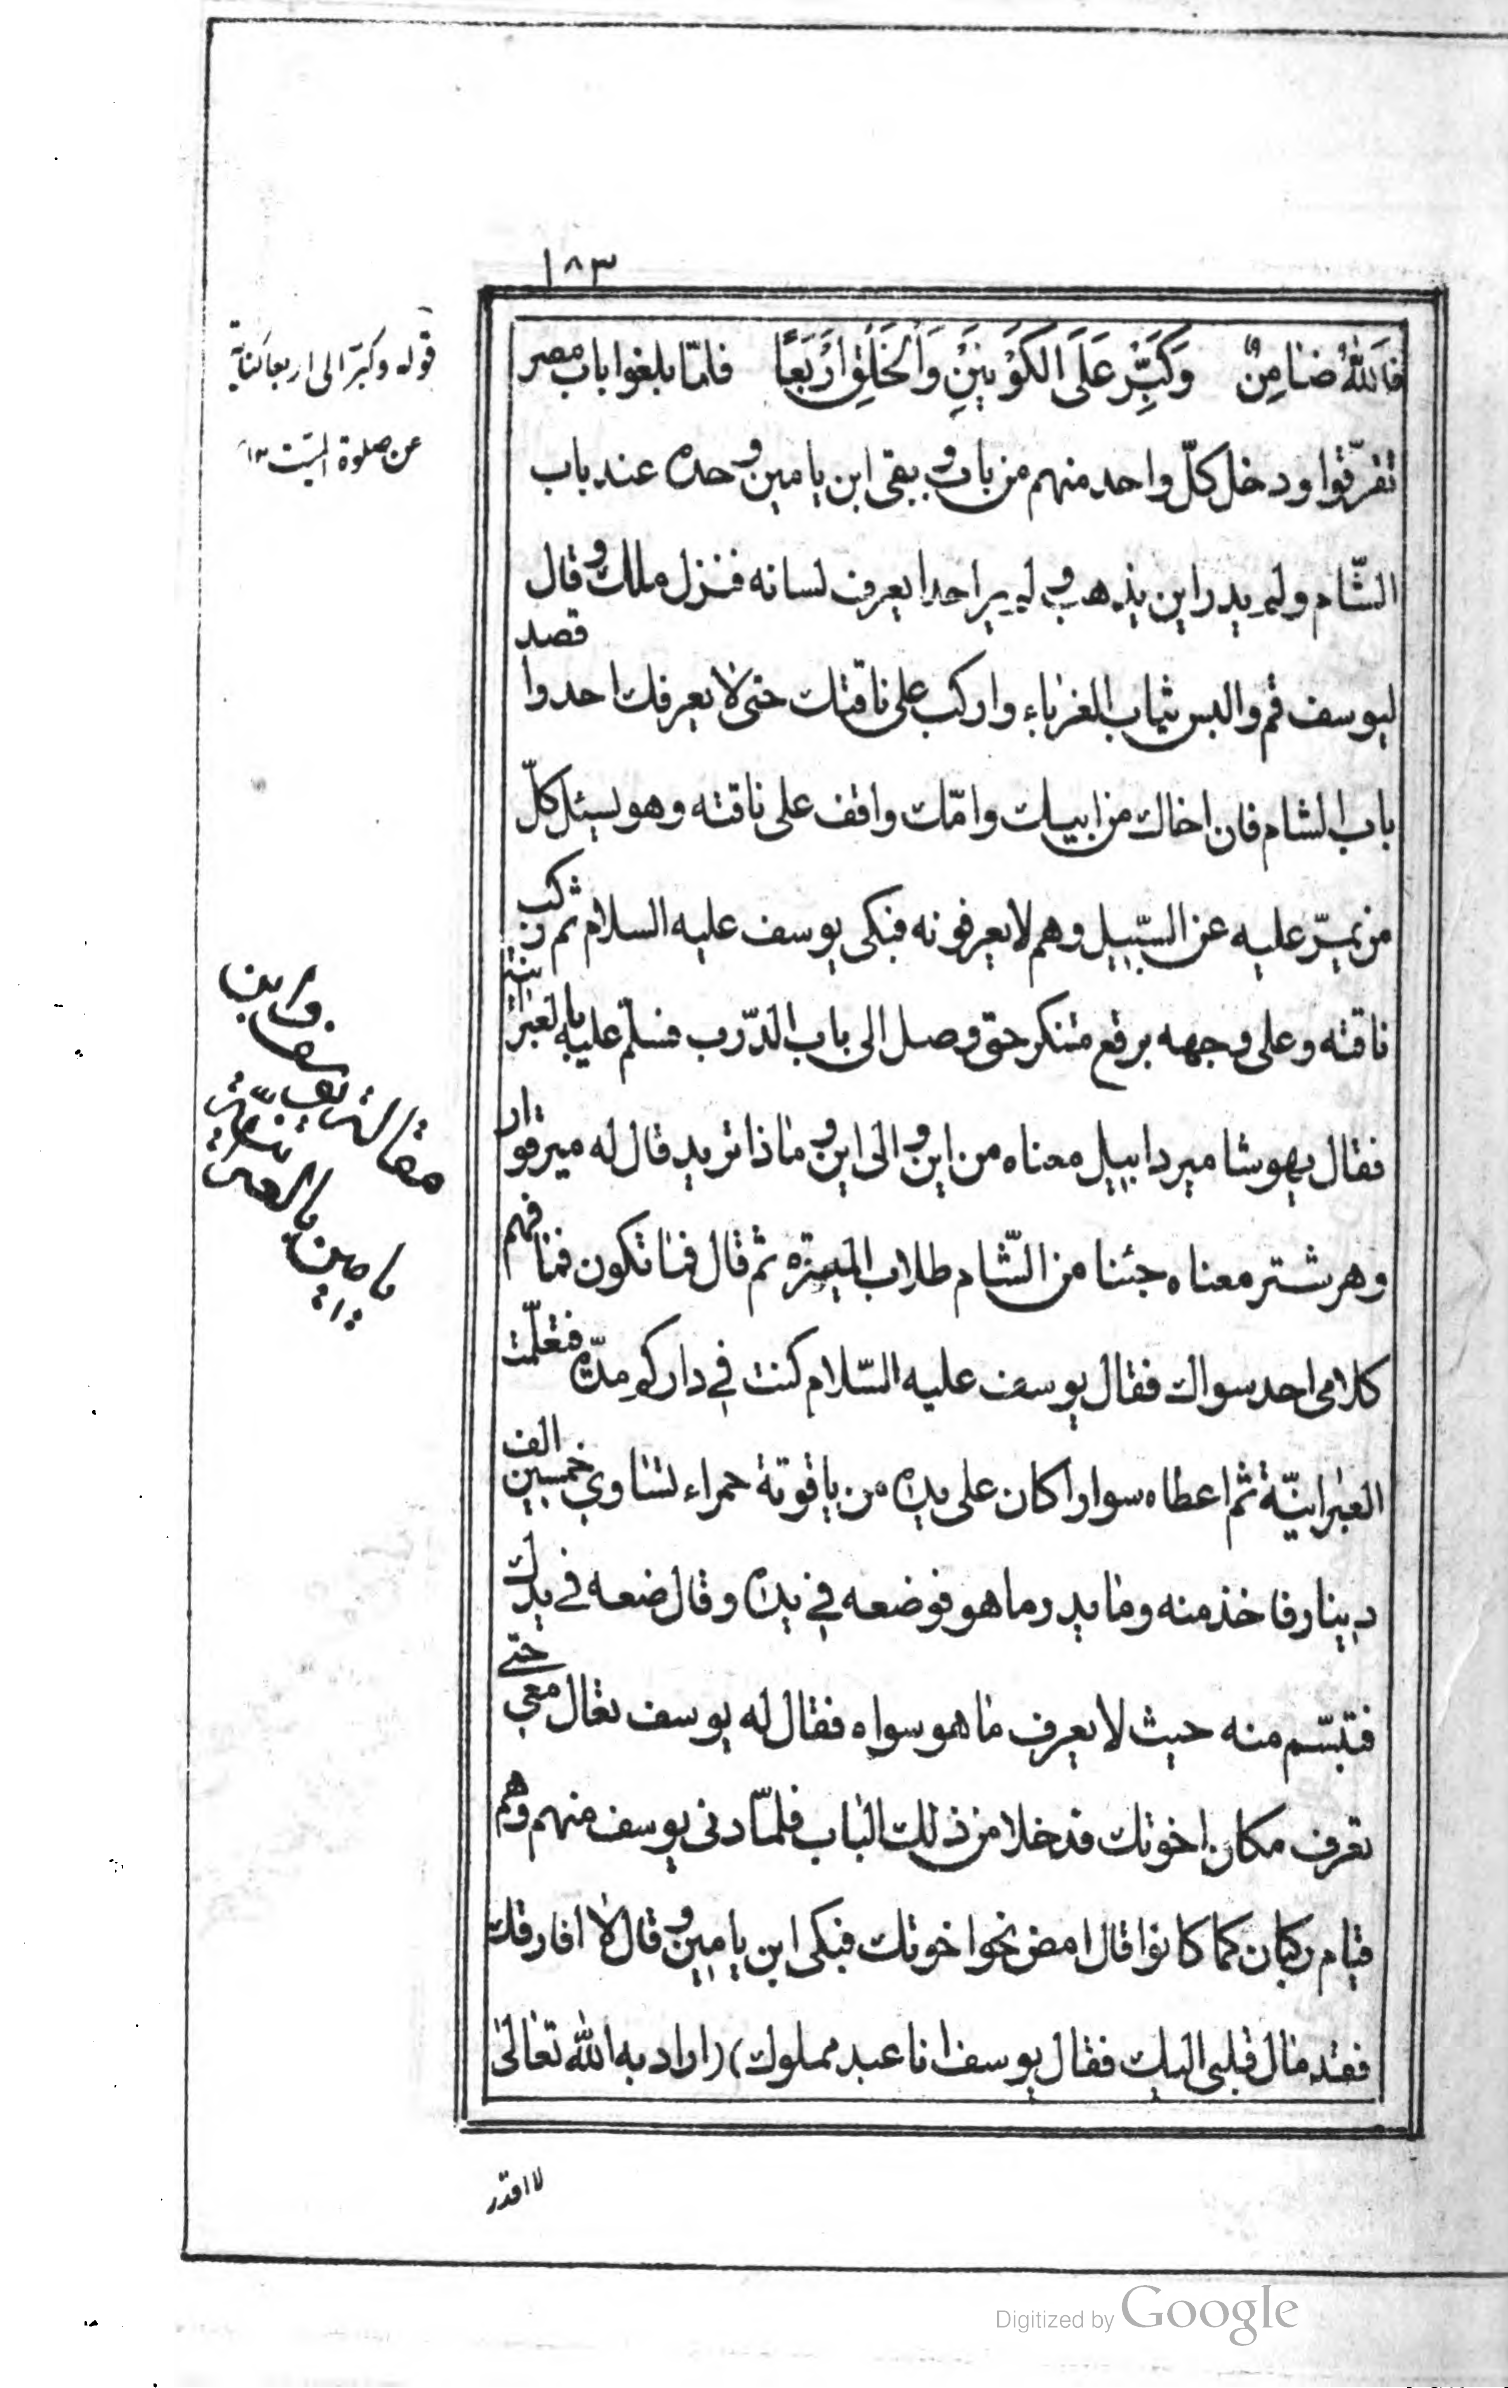 ١٨٣
فَاللّٰهُ ضٰامِنٌ وَكَبِّرْ عَلَى الْكَوْنَيْنِ وَالْخَلْقِ اَرْبَعًا فلمّا بلغوا باب مصر
تفرّقوا ودخل كلّ واحد منهم من باب و بقى ابن يامين وحده عند باب
الشّام ولم يدر اين يذهب ولم ير احدا يعرف لسانه فنزل ملك وقال
ليوسف قم والبس ثياب الغرباء واركب على ناقتك حتى لا يعرفك احد واقصد
باب الشام فان اخاك من ابيك وامّك واقف على ناقته وهو يسئل كلّ
من يمرّ عليه عن السّبيل وهم لا يعرفونه فبكى يوسف عليه السلام ثم ركب
ناقته وعلى وجهه برقع متنكر حتى وصل الى باب الدّرب فسلّم عليه بالعبرانية
فقال يهوشا ميردابيل معناه من اين و الى اين و ماذا تريد قال له ميرقوار
وهرشتر معناه جئنا من الشّام طلاب الميرة ثم قال فما تكون فما فهم
كلامى احد سواك فقال يوسف عليه السّلام كنت في داركم مدّة فتعلّمت
العبرانيّة ثم اعطاه سوارا كان على يده من ياقوتة حمراء تساوي خمسين الف
دينار فاخذ منه وما يدر ما هو فوضعه في يده وقال ضعه في يدك
فتبسّم منه حيث لا يعرف ما هو سواه فقال له يوسف تعال معي حتى
تعرف مكان اخوتك فدخلا من ذلك الباب فلمّا دنى يوسف منهم وهم
قيام ركبان كما كانوا قال امض نحو اخوتك فبكى ابن يامين وقال لا افارقك
فقد مال قلبى اليك فقال يوسف انا عبد مملوك (اراد به اللّه تعالى
لا اقدر
قوله وكبّر الى اربعا كناية
عن صلوة الميّت ١٢
مقالة يوسف وابن
يامين بالعبرانية
١٢
Digitized by Google